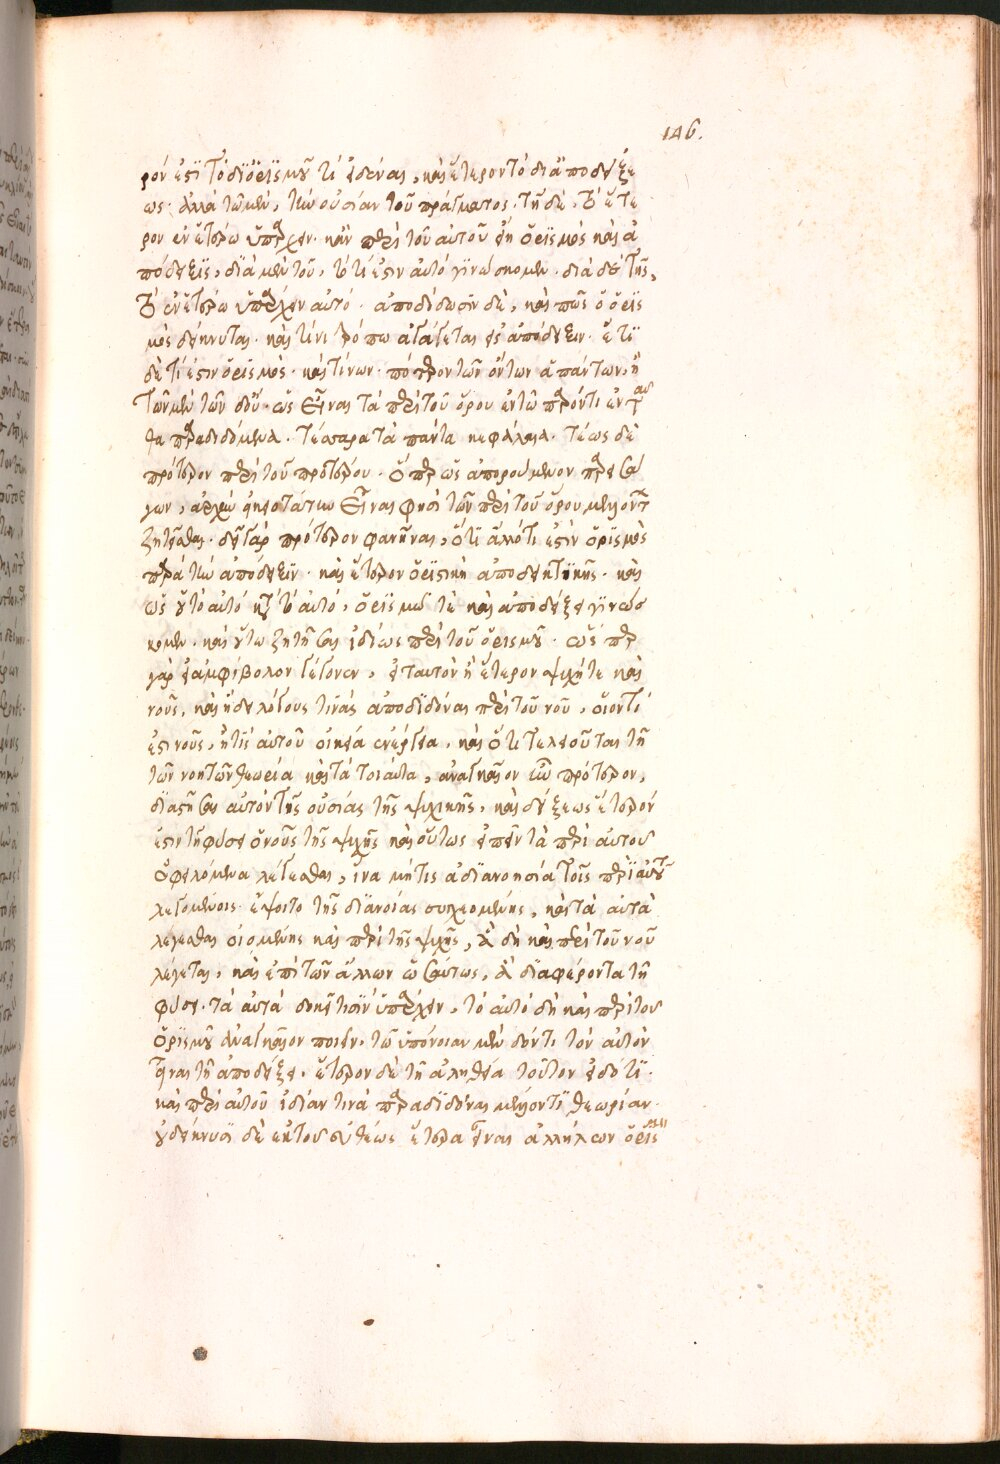 146.
ρόν ἐστι τὸ δι' ὁρισμοῦ τί εἰδέναι, καὶ ἕτερον τὸ δι' ἀποδείξε
ως· ἀλλὰ τῶ μὲν, τὴν οὐσίαν τοῦ πράγματος· τῆ δὲ, τὸ ἕτε
ρον ἐν ἑτέρω ὑπάρχειν· κἂν περὶ τοῦ αὐτοῦ εἴη ὁρισμὸς καὶ ἀ
πόδειξις, διὰ μὲν τοῦ, τὸ τί ἐστιν αὐτὸ γινώσκομεν· διὰ δὲ τῆς,
τὸ ἐν ἑτέρω ὑπάρχειν αὐτό· ἀποδίδωσιν δὲ, καὶ πῶς ὁ ὁρισ
μὸς δείκνυται· καὶ τίνι τρόπω ἀνάγεται εἰς ἀπόδειξιν· ἔτι
δὲ τί ἐστιν ὁρισμὸς· καὶ τίνων· πότερον τῶν ὄντων ἁπάντων, ἢ
τῶν μὲν τῶν δοὔ· ὡς εἶναι τὰ περὶ τοῦ ὅρου ἐν τῶ παρόντι ἐνταῦ
θα παραδιδόμενα· τέσσαρα τὰ πάντα κεφάλαια· τέως δὲ
πρότερον περὶ τοῦ προτέρου· ὅπερ ὡς ἀπορούμενον παρεισά
γων, ἀρχὴν οἰκειοτάτην εἶναι φησὶ τῶν περὶ τοῦ ὅρου μέλλοντ
ζητεῖσθαι· δεῖ γὰρ πρότερον φανῆναι, ὅτι ἄλλό τι ἐστὶν ὁρισμὸς
παρὰ τὴν ἀπόδειξιν· καὶ ἕτερον ὁριστικὴ ἀποδεικτικῆς· καὶ
ὡς οὐ τὸ αὐτὸ κατὰ τὸ αὐτὸ, ὁρισμῶ τὲ καὶ ἀποδείξει γινώσ
κομεν· καὶ οὕτω ζητῆσαι ἰδίως περὶ τοῦ ὁρισμοῦ· ὥσπερ
γὰρ εἰ ἀμφίβολον γέγονεν, εἰ ταυτὸν ἢ ἕτερον ψυχή τε καὶ
νοῦς, καὶ ἤδει λόγους τινὰς ἀποδιδόναι περὶ τοῦ νοῦ, οἷον τί
ἐστι νοῦς, ἢ τίς αὐτοῦ οἰκεία ἐνέργεια, καὶ ὅτι τελειοῦται τῆ
τῶν νοητῶν θεωρία καὶ τὰ τοιαῦτα, ἀναγκαῖον ἦν πρότερον,
διαστῆσαι αὐτὸν τῆς οὐσίας τῆς ψυχικῆς, καὶ δεῖξαι ὡς ἕτερόν
ἐστι τῆ φύσει ὁ νοῦς τῆς ψυχῆς καὶ οὕτως εἰπεῖν τὰ περὶ αὐτοῦ
ὀφειλόμενα λέγεσθαι, ἵνα μή τις ἀδιανοησία τοῖς περὶ αὐτοῦ
λεγομένοις ἕψοιτο τῆς διανοίας συγχεομένης, καὶ τὰ αὐτὰ
λέγεσθαι οἰομένης καὶ περὶ τῆς ψυχῆς, ἃ δὴ καὶ περὶ τοῦ νοῦ
λέγεται, καὶ ἐπὶ τῶν ἄλλων ὡσαύτως, ἃ διαφέροντα τῆ
φύσει· τὰ αὐτὰ δοκεῖ τισὶν ὑπάρχειν, τὸ αὐτὸ δὴ καὶ περὶ τοῦ
ὁρισμοῦ ἀναγκαῖον ποιεῖν, τῶ ὑπόνοιαν μὲν δόντι τὸν αὐτὸν
εἶναι τῆ ἀποδείξει, ἕτερον δὲ τῆ ἀληθεία τοῦτον εἰδότι·
καὶ περὶ αὐτοῦ ἰδίαν τινὰ παραδιδόναι μέλλοντι θεωρίαν·
ὑδείκνυσι δὲ ἐκ τοῦ εὐθέως ἕτερα εἶναι ἀλλήλων ὁρισμὸν